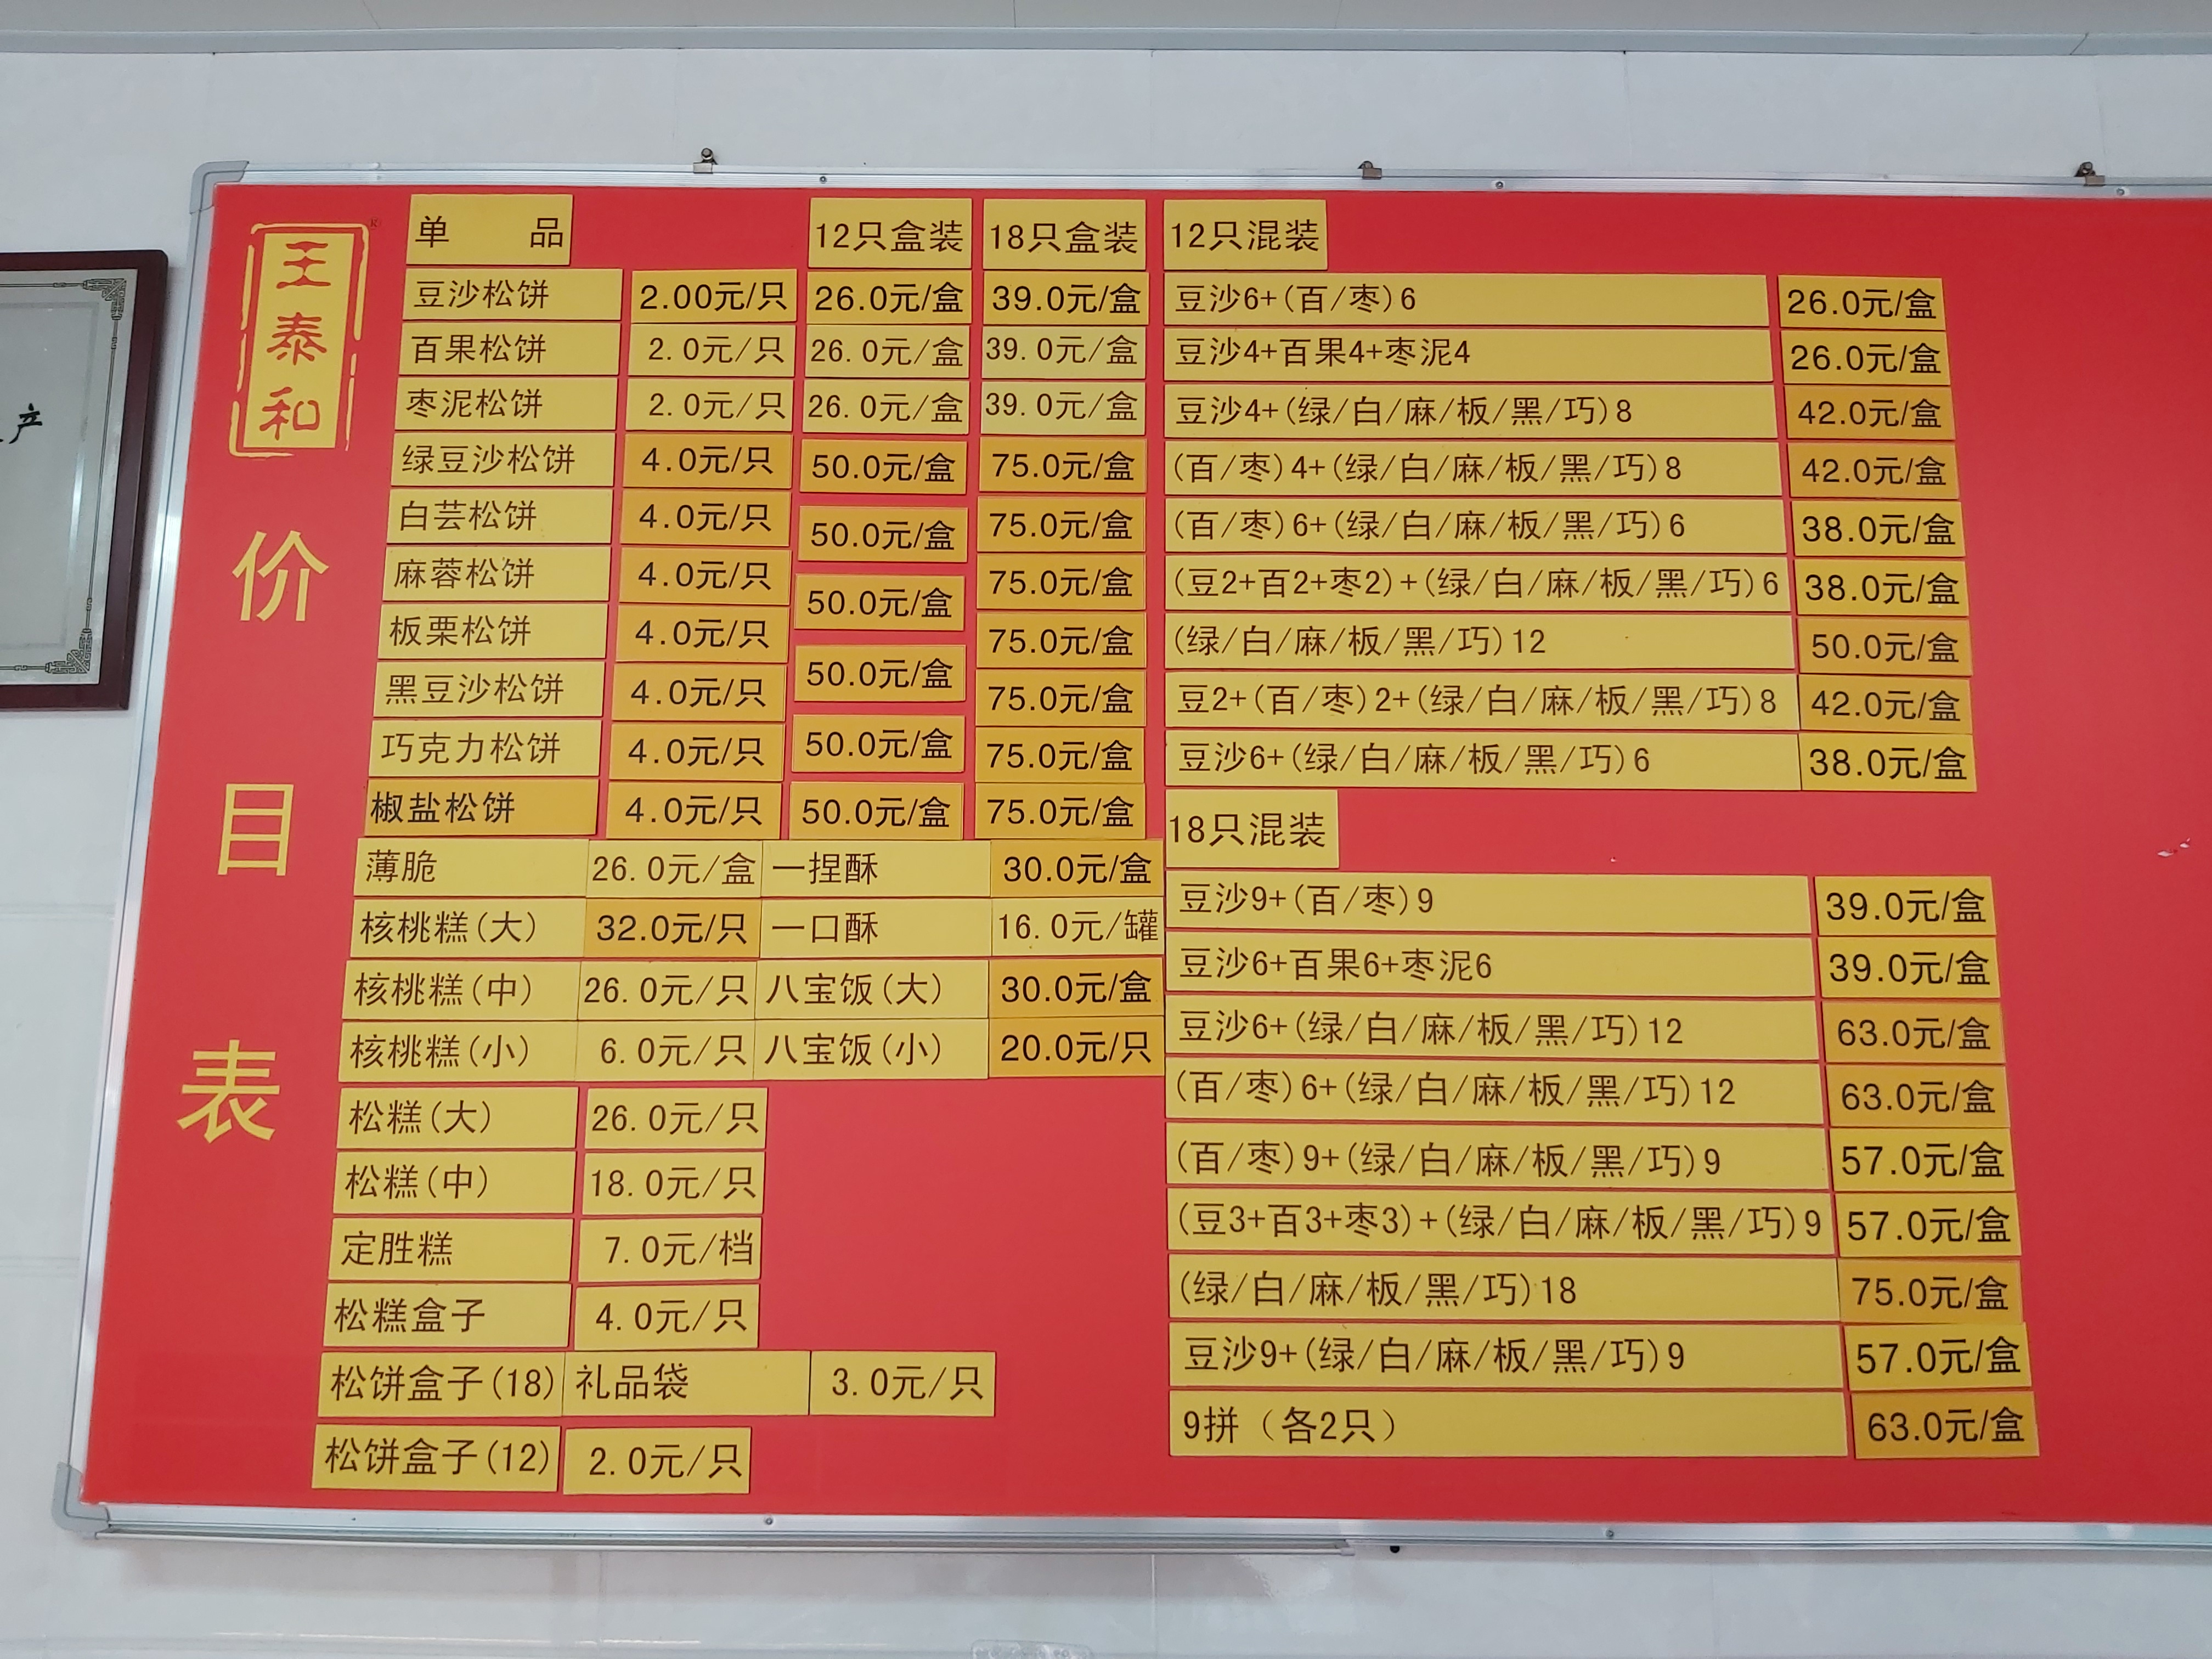 王泰和
®
价目表
单 品 12只盒装 18只盒装
豆沙松饼 2.00元/只 26.0元/盒 39.0元/盒
百果松饼 2.0元/只 26.0元/盒 39.0元/盒
枣泥松饼 2.0元/只 26.0元/盒 39.0元/盒
绿豆沙松饼 4.0元/只 50.0元/盒 75.0元/盒
白芸松饼 4.0元/只 50.0元/盒 75.0元/盒
麻蓉松饼 4.0元/只 50.0元/盒 75.0元/盒
板栗松饼 4.0元/只 50.0元/盒 75.0元/盒
黑豆沙松饼 4.0元/只 50.0元/盒 75.0元/盒
巧克力松饼 4.0元/只 75.0元/盒
椒盐松饼 4.0元/只 50.0元/盒 75.0元/盒
薄脆 26.0元/盒 一捏酥 30.0元/盒
核桃糕(大) 32.0元/只 一口酥 16.0元/罐
核桃糕(中) 26.0元/只 八宝饭(大) 30.0元/盒
核桃糕(小) 6.0元/只 八宝饭(小) 20.0元/只
松糕(大) 26.0元/只
松糕(中) 18.0元/只
定胜糕 7.0元/档
松糕盒子 4.0元/只
松饼盒子(18) 礼品袋 3.0元/只
松饼盒子(12) 2.0元/只
12只混装
豆沙6+(百/枣)6 26.0元/盒
豆沙4+百果4+枣泥4 26.0元/盒
豆沙4+(绿/白/麻/板/黑/巧)8 42.0元/盒
(百/枣)4+(绿/白/麻/板/黑/巧)8 42.0元/盒
(百/枣)6+(绿/白/麻/板/黑/巧)6 38.0元/盒
(豆2+百2+枣2)+(绿/白/麻/板/黑/巧)6 38.0元/盒
(绿/白/麻/板/黑/巧)12 50.0元/盒
豆2+(百/枣)2+(绿/白/麻/板/黑/巧)8 42.0元/盒
豆沙6+(绿/白/麻/板/黑/巧)6 38.0元/盒
18只混装
豆沙9+(百/枣)9 39.0元/盒
豆沙6+百果6+枣泥6 39.0元/盒
豆沙6+(绿/白/麻/板/黑/巧)12 63.0元/盒
(百/枣)6+(绿/白/麻/板/黑/巧)12 63.0元/盒
(百/枣)9+(绿/白/麻/板/黑/巧)9 57.0元/盒
(豆3+百3+枣3)+(绿/白/麻/板/黑/巧)9 57.0元/盒
(绿/白/麻/板/黑/巧)18 75.0元/盒
豆沙9+(绿/白/麻/板/黑/巧)9 57.0元/盒
9拼（各2只） 63.0元/盒
产